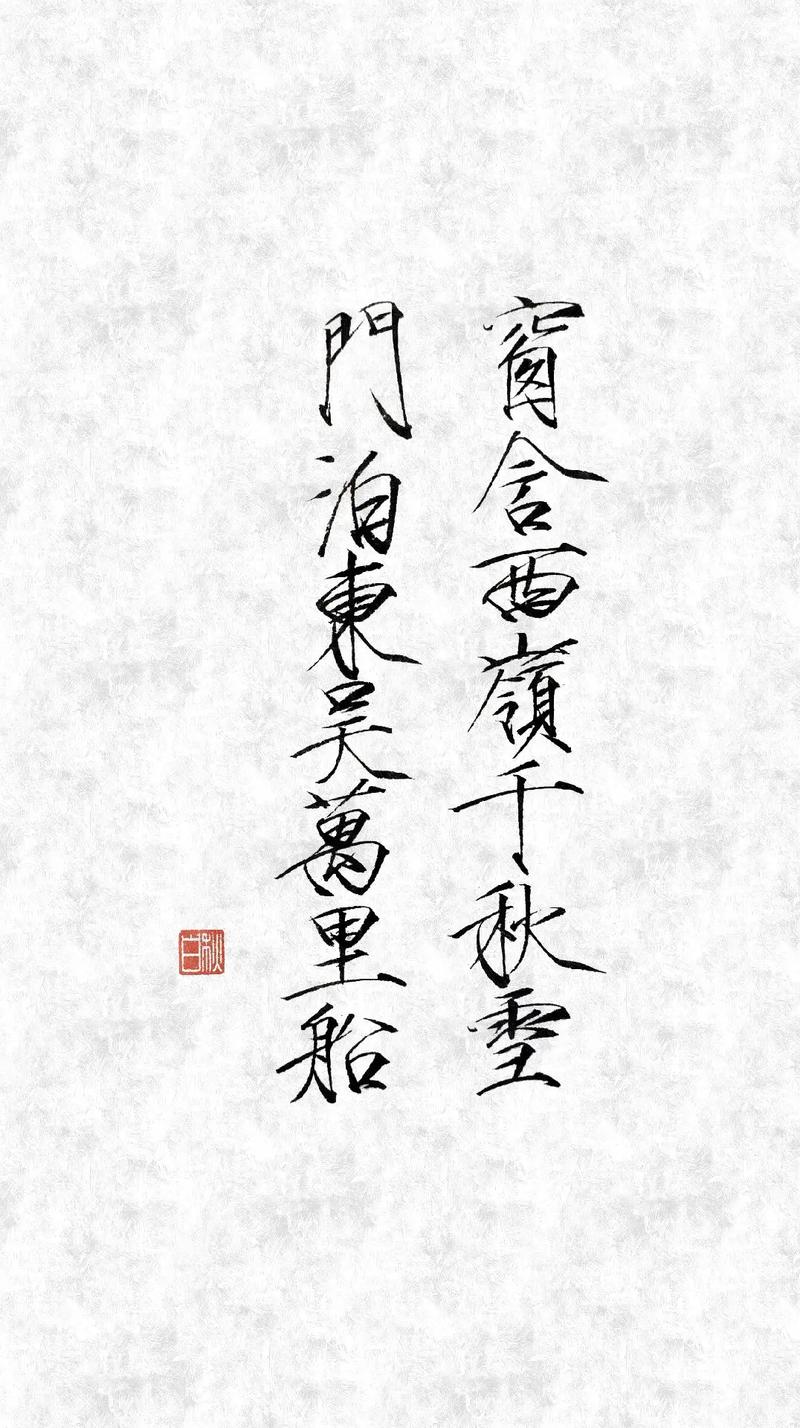 窗含西嶺千秋雪
門泊東吳萬里船
秋白